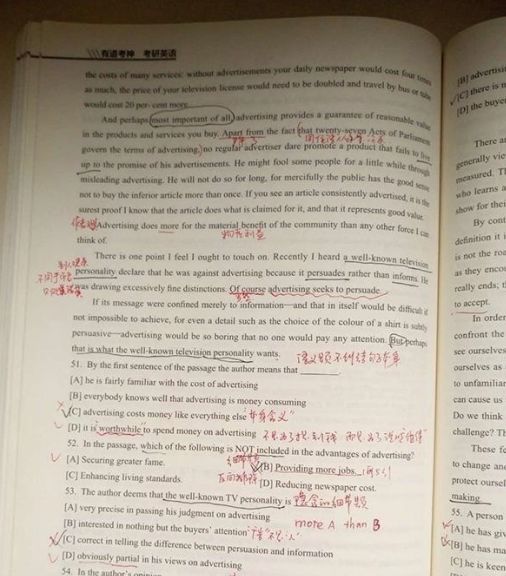 有道考神 考研英语
the costs of many services: without advertisements your daily newspaper would cost four times
as much, the price of your television license would need to be doubled and travel by bus or tube
would cost 20 per cent more.
And perhaps most important of all, advertising provides a guarantee of reasonable value
in the products and services you buy. Apart from the fact that twenty-seven Acts of Parliament
govern the terms of advertising, no regular advertiser dare promote a product that fails to live
up to the promise of his advertisements. He might fool some people for a little while through
misleading advertising. He will not do so for long, for mercifully the public has the good sense
not to buy the inferior article more than once. If you see an article consistently advertised, it is the
surest proof I know that the article does what is claimed for it, and that it represents good value.
Advertising does more for the material benefit of the community than any other force I can
think of.
There is one point I feel I ought to touch on. Recently I heard a well-known television
personality declare that he was against advertising because it persuades rather than informs. He
was drawing excessively fine distinctions. Of course advertising seeks to persuade.
If its message were confined merely to information—and that in itself would be difficult if
not impossible to achieve, for even a detail such as the choice of the colour of a shirt is subtly
persuasive—advertising would be so boring that no one would pay any attention. But perhaps
that is what the well-known television personality wants.
51. By the first sentence of the passage the author means that
[A] he is fairly familiar with the cost of advertising
[B] everybody knows well that advertising is money consuming
[C] advertising costs money like everything else "本身含义"
[D] it is worthwhile to spend money on advertising
52. In the passage, which of the following is NOT included in the advantages of advertising?
[A] Securing greater fame. [B] Providing more jobs.
[C] Enhancing living standards. [D] Reducing newspaper cost.
53. The author deems that the well-known TV personality is
[A] very precise in passing his judgment on advertising
more A than B
[B] interested in nothing but the buyers' attention
[C] correct in telling the difference between persuasion and information
[D] obviously partial in his views on advertising
54. In the author's opinion
[B] advertisi
[C] there is n
[D] the buye
There a
generally vie
measured. T
who learns a
show for thei
By cont
definition it i
is not the roa
as they encou
really ends; t
to accept.
In order
confront the
see ourselves
ourselves as
to unfamiliar
can cause us
Do we think
challenge? Th
These fe
to change and
protect oursel
making
55. A person
[A] he has giv
[B] he has ma
[C] he is keen